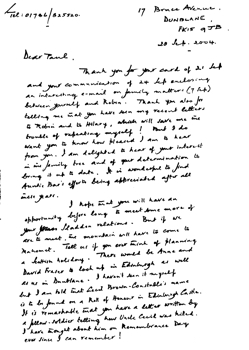 Tel: 01786/825520.
17 Bruce Avenue.
DUNBLANE.
FK15 9JB
20 Sep. 2004.
Dear Paul,
Thank you for your card of 21 Sep
and your communication of 24 Sep enclosing
an interesting email on family matters (7 Sep)
between yourself and Robin. Thank you also for
telling me that you have seen my recent letters
to Robin and to Hilary, which will save me the
trouble of repeating myself! But I do
want you to know how pleased I am to hear
from you. I am delighted to hear of your interest
in the family tree and of your determination to
bring it up to date. It is wonderful to find
Auntie Bar's efforts being appreciated after all
these years.
I hope that you will have an
opportunity before long to meet some more of
your relations. But if we
are to meet, the mountain will have to come to
Mahomet. Tell us if you ever think of planning
a Scottish holiday. There would be Anne and
David Fraser to look up in Edinburgh as well
as us in Dunblane. I haven't seen it myself
but I am told that Cecil Brownlow-Constable's name
is to be found on a Roll of Honour in Edinburgh Castle.
It is remarkable that you have a letter written by
a fellow-soldier telling how Uncle Cecil was killed.
I have thought about him on Remembrance Day
ever since I can remember!